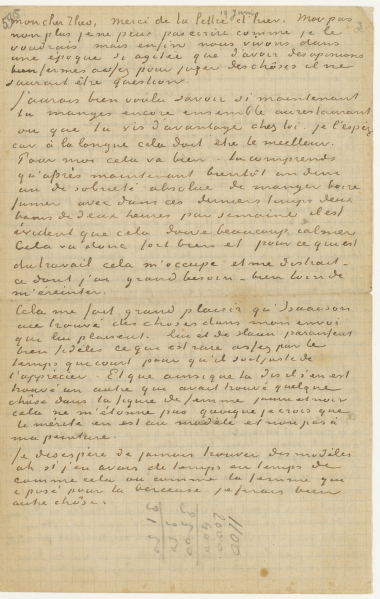 mon cher Theo, Merci de ta lettre d'hier. Moi pas
non plus je ne peux pas ecrire comme je le
voudrais mais enfin nous vivons dans
une époque si agitée que d'avoir des opinions
bien fermes assez pour juger des chôses il ne
saurait être question.
J'aurais bien voulu savoir si maintenant
tu manges encore ensemble au restaurant
ou que tu vis d'avantage chez toi. je l'espère
car à la longue cela doit être le meilleur.
Pour moi cela va bien – tu comprends
qu'après maintenant bientôt un demi
an de sobrieté absolue de manger boire
fumer avec dans ces derniers temps deux
bains de deux heures par semaine il est
évident que cela doive beaucoup calmer
Cela va donc fort bien et pour ce qui est
du travail cela m'occupe et me distrait –
ce dont j'ai grand besoin – bien loin de
m'ereinter.
Cela me fait grand plaisir qu'Isaacson
aie trouvé des choses dans mon envoi
qui lui plaisent. Lui et de Haan paraissent
bien fidèles ce qui est rare assez par le
temps qui court pour qu'il soit juste de
l'apprécier. Et que ainsi que tu dis il s'en est
trouvé un autre qui avait trouvé quelque
chôse dans la figure de femme jaune et noir
cela ne m'étonne pas quoique je crois que
le mérite en est au modèle et non pas à
ma peinture.
Je desespère de jamais trouver des modèles
ah si j'en avais de temps en temps de
comme cela ou comme la femme qui
a posé pour la berceuse je ferais bien
autre chôse.